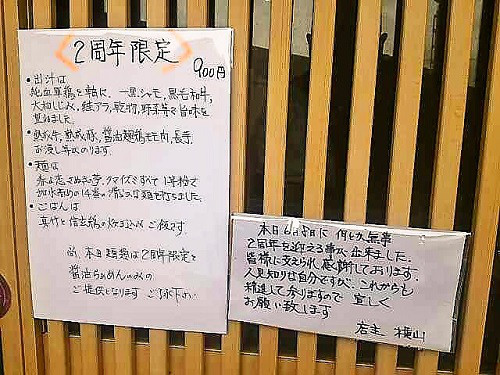 2周年限定
900円
・出汁は
純血軍鶏を軸に、一黒シャモ、黒毛和牛、
大和しじみ、鮭アラ、乾物、野菜等々旨味を
重ねました。
・熟成牛、熟成豚、醤油麹鶏モモ肉、長芋、
お浸し等々のります。
・麺は
春よ恋、さぬきの夢、タマイズミすべて1等粉で
加水高めの14番の滑らかな麺を打ちました。
・ごはんは
真竹と信玄鶏の炊き込みご飯です。
尚、本日麺類は2周年限定と
醤油らぁめんのみの
ご提供となります ご了承下さい
本日6月8日に何とか無事
2周年を迎える事が出来ました。
皆様に支えられ感謝しております。
人見知りな自分ですが、これからも
精進して参りますので宜しく
お願い致します
店主 横山